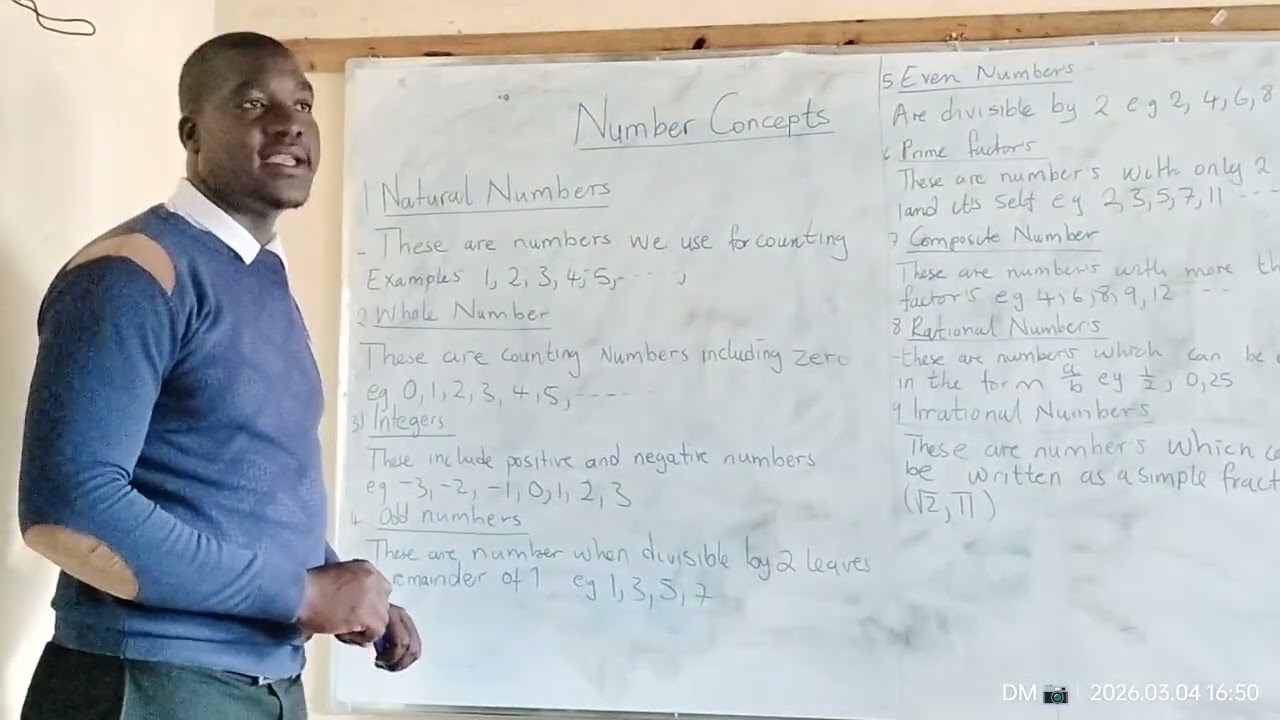 Number Concepts
1 Natural Numbers
- These are numbers we use for counting
Examples 1, 2, 3, 4, 5, - - - - ,
2 Whole Number
These are counting Numbers including zero
eg 0, 1, 2, 3, 4, 5, - - - -
3) Integers
These include positive and negative numbers
eg -3, -2, -1, 0, 1, 2, 3
4. Odd numbers
These are number when divisible by 2 leaves
remainder of 1 eg 1, 3, 5, 7
5 Even Numbers
Are divisible by 2 eg 2, 4, 6, 8
6 Prime factors
These are number's with only 2
1 and it's self eg 2, 3, 5, 7, 11 - - -
7 Composite Number
These are number's with more
factor's eg 4, 6, 8, 9, 12 - -
8 Rational Numbers
- these are numbers which can be
in the form a/b eg 1/2, 0,25
9 Irrational Numbers
These are number's which
be written as a simple
(√2, π)
DM 2026.03.04 16:50